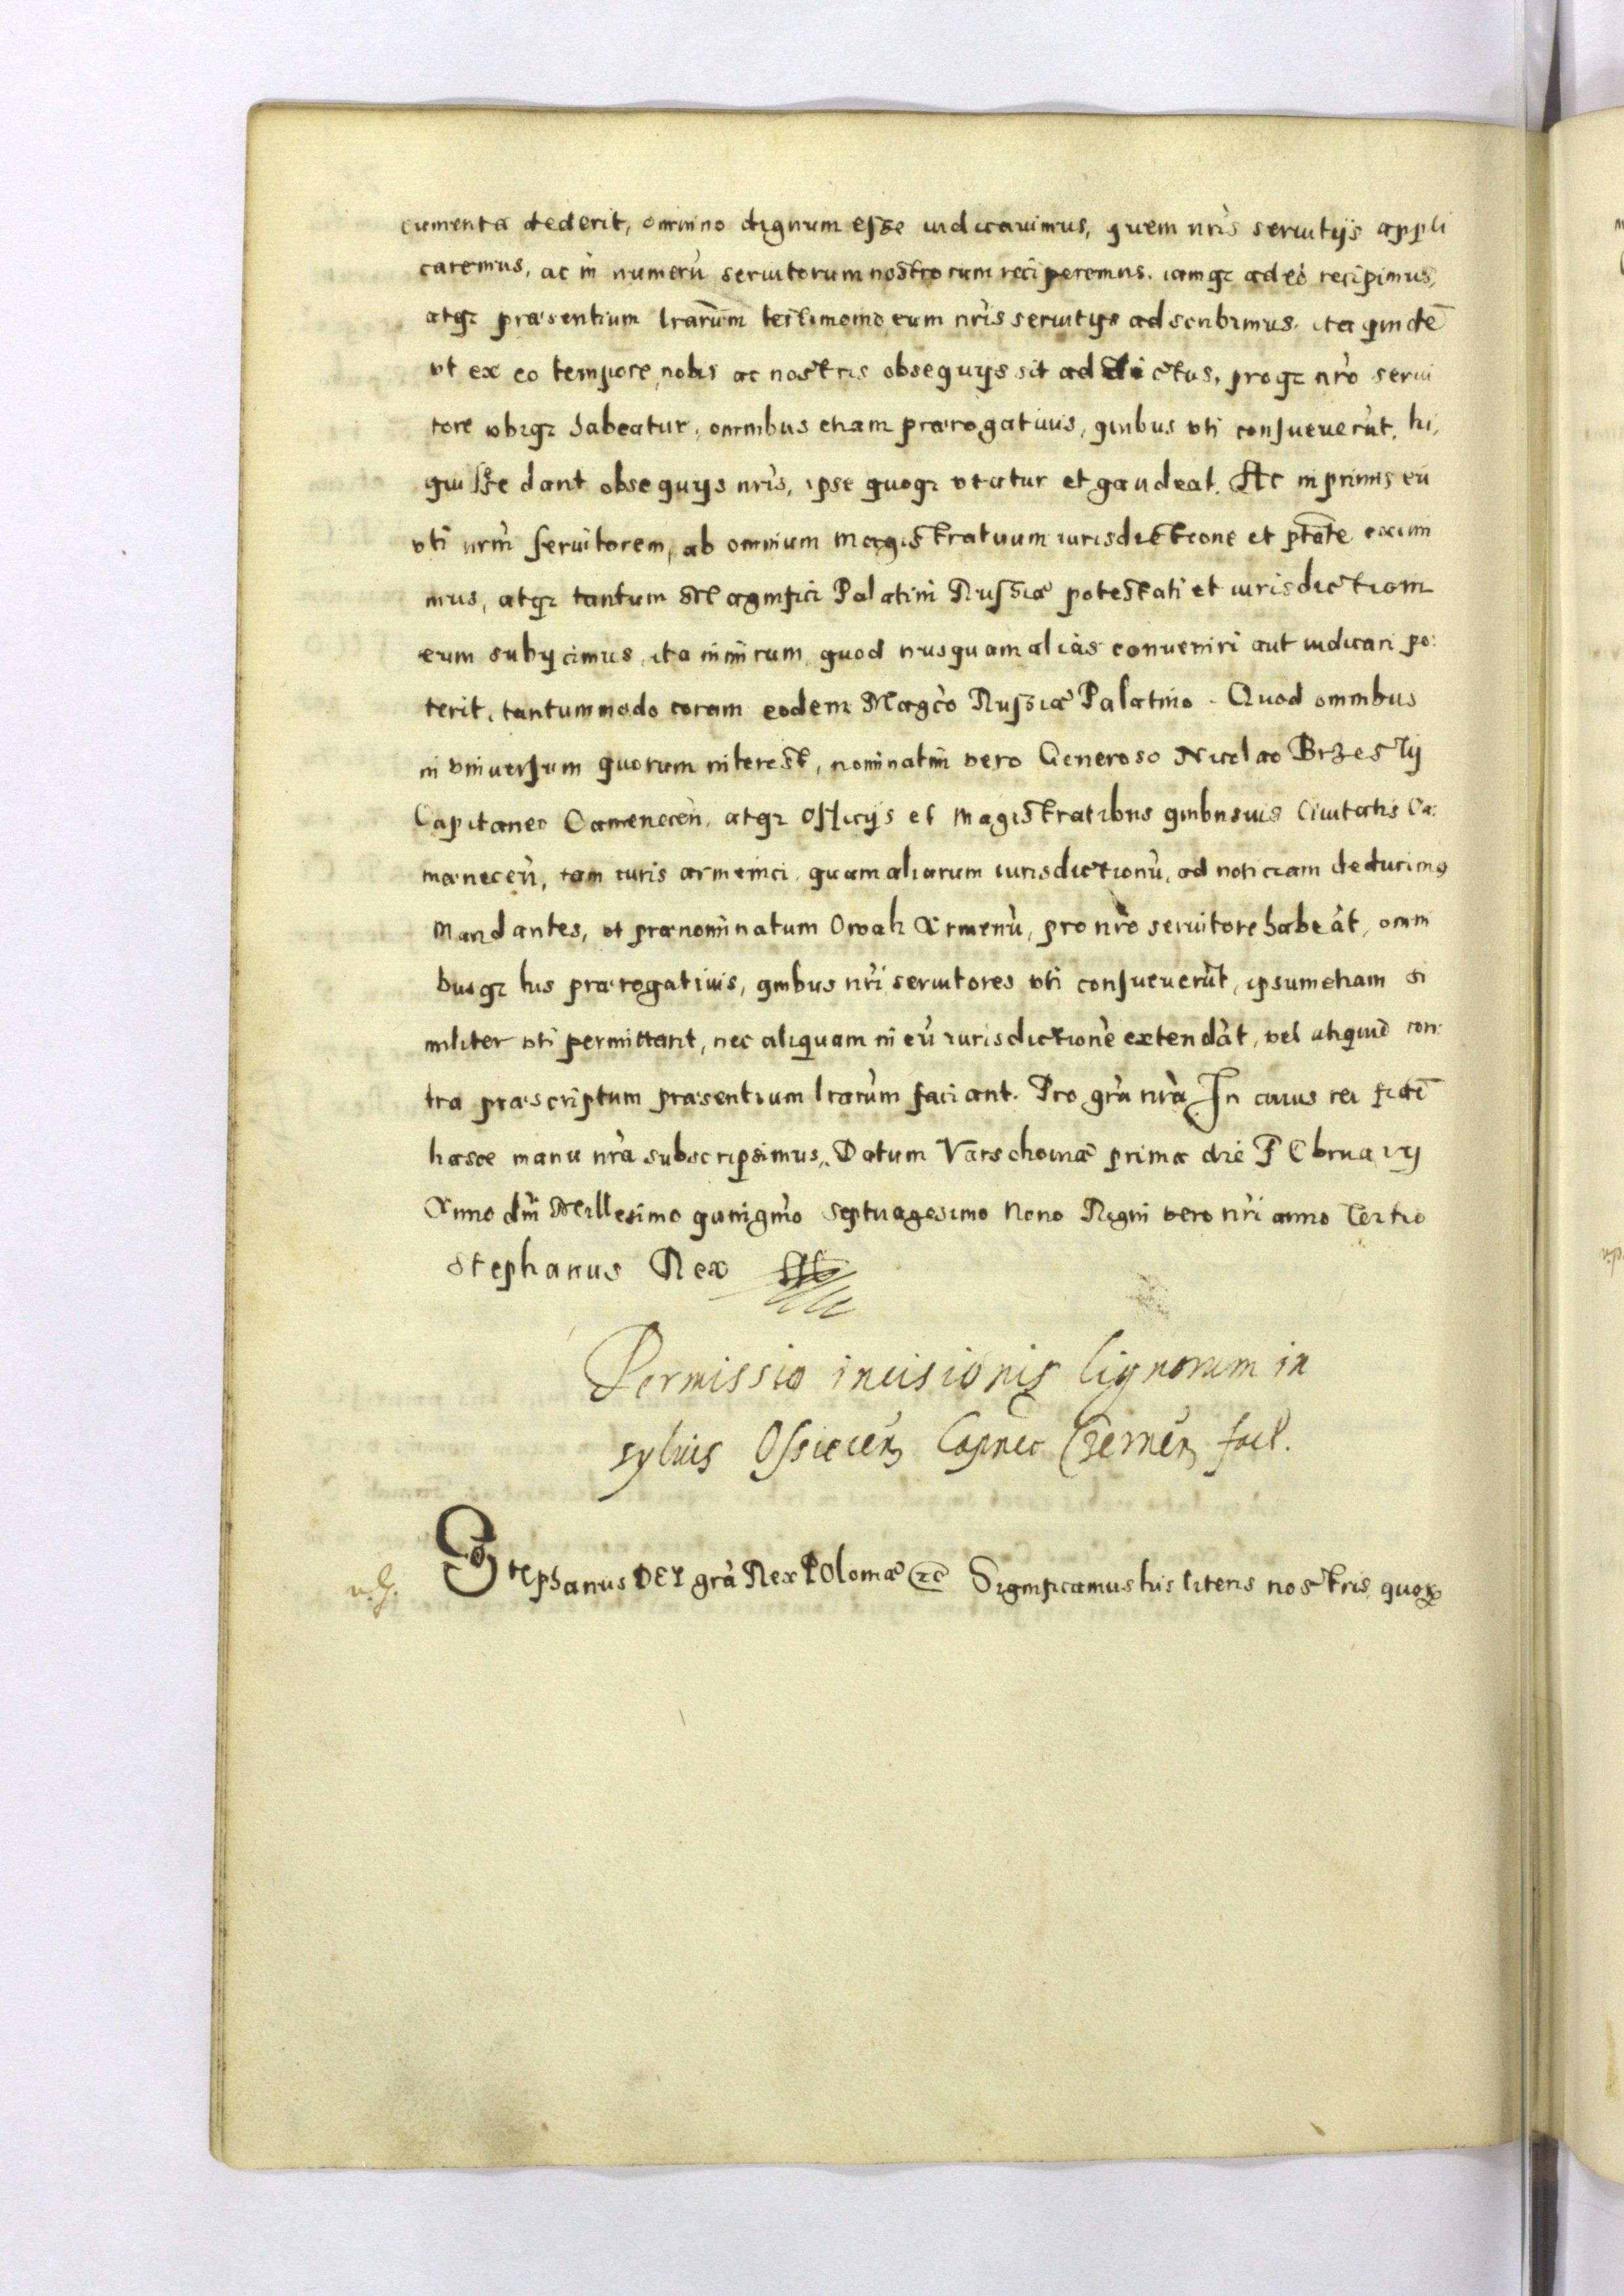 cumenta dederit, omnino dignum esse iudicauimus, quem nr̃is seruitijs appli
caremus, ac in numerũ seruitorum nostrorum reciperemus. iamqꝫ adeò recipimus,
atqꝫ præsentium lrarũm testimonio eum nr̃is seruitijs adscribimus. ita quidẽ
vt ex eo tempore nobis ac nostris obsequijs sit addictus, proqꝫ nr̃o serui
tore vbiqꝫ habeatur, omnibus etiam prærogatiuis, quibus vti consueuerũt, hi,
qui se dant obsequijs nr̃is, ipse quoqꝫ vtatur et gaudeat. Ac inprimis eũ
vti nrm̃ seruitorem, ab omnium magistratuum iurisdictione et ptãte eximi
mus, atqꝫ tantum Magnifici Palatini Russiæ potestati et iurisdictioni
eum subijcimus, ita nimirum, quod nusquam aliàs conueniri aut iudicari po:
terit, tantummodo coram eodem Magc̃o Russiæ Palatino. Quod omnibus
in vniuersum quorum interest, nominatim vero Generoso Nicolao Brzesky
Capitaneo Camenecen̄, atqꝫ officijs et magistratibus quibusuis Ciuitatis Ca:
mænecen̄, tam iuris armenici, quam aliarum iurisdictionũ, ad noticiam deducimꝯ
Mandantes, vt prænominatum Owak Armenũ, pro nr̃o seruitore habeãt, omni
busqꝫ his prærogatiuis, quibus nr̃i seruitores vti consueuerũt, ipsum etiam si
militer vti permittant, nec aliquam in eũ iurisdictionẽ extendãt, vel aliquid con:
tra præscriptum præsentium lrarũm faciant. Pro grã nr̃a In cuius rei fidẽ
hasce manu nr̃a subscripsimus. Datum Varschouiæ prima die FEbruarij
Anno dn̄i Millesimo quingm̃o Septuagesimo Nono Regni vero nr̃i anno Tertio
Stephanus Rex
Permissio incisionis lignorum in
syluis Ossiecen̄ Capneo Czernen̄ fact.
Stephanus DEI grã Rex POloniæ ꝛc̄ Significamus his literis nostris, quoꝝ